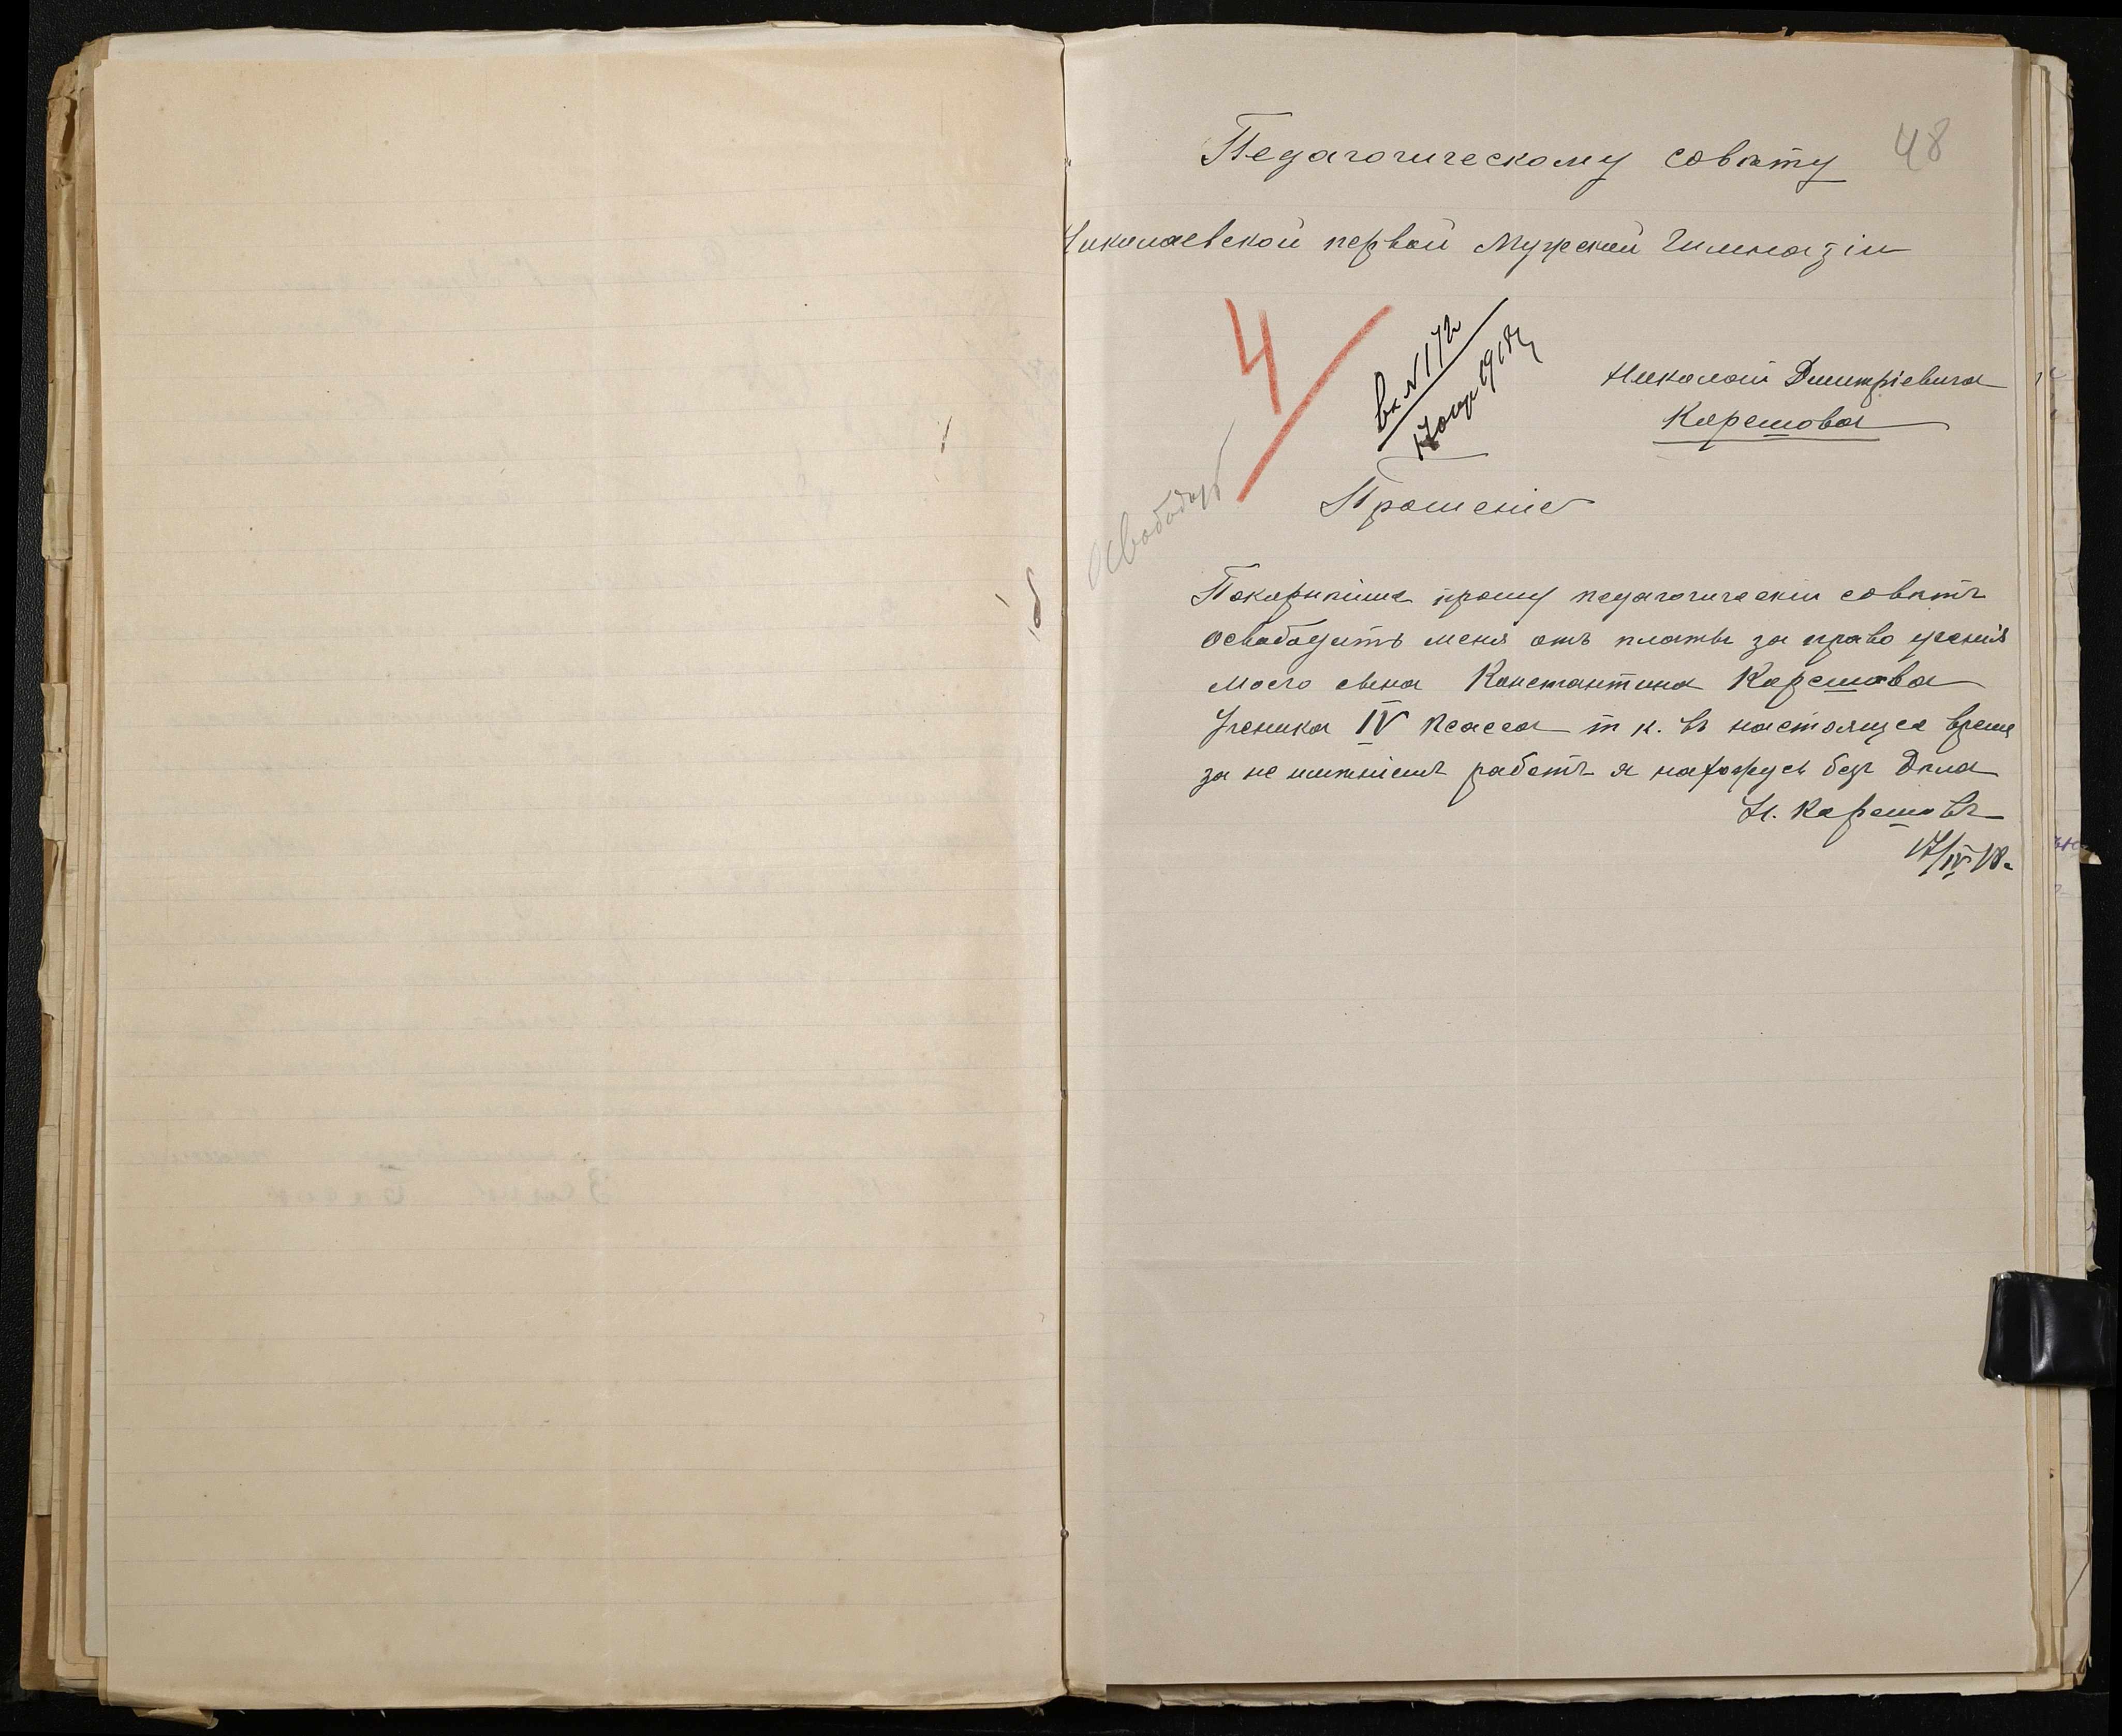 48
Педагогическому совѣту
Николаевской первой Мужской Гимназіи
4
вх. № 172
17 апр 1918 г
Николай Дмитріевича
Карешова
освободить
Прошеніе
Покорнѣйше прошу педагогическій совѣтъ
освободить меня отъ платы за право ученія
моего сына Константина Карешова
ученика IV класса т к. въ настоящее время
за не имѣніемъ работъ я нахожусь безъ Дѣла
Н. Карешовъ
17/IV 18 г.